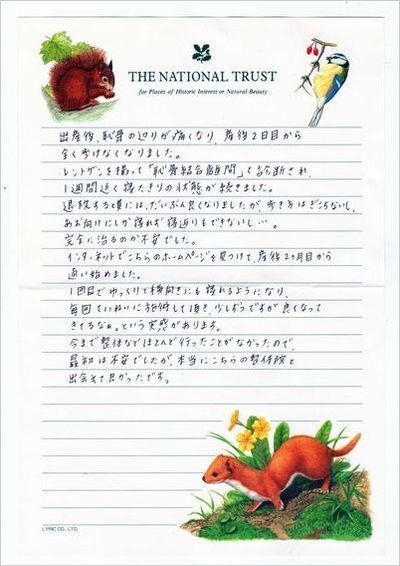 THE NATIONAL TRUST
for Places of Historic Interest or Natural Beauty
出産後、恥骨の辺りが痛くなり、産後2日目から
全く歩けなくなりました。
レントゲンを撮って「恥骨結合離開」と診断され、
1週間近く寝たきりの状態が続きました。
退院する頃には、だいぶん良くなりましたが、歩き方はぎこちないし、
あお向けにしか寝れず寝返りもできないし…。
完全に治るのか不安でした。
インターネットでこちらのホームページを見つけて、産後2ヶ月目から
通い始めました。
1回目でゆっくりと横向きにも寝れるようになり、
毎回ていねいに施術して頂き、少しずつですが良くなって
きてるなぁ。という実感があります。
今まで整体などほとんど行ったことがなかったので、
最初は不安でしたが、本当にこちらの整体院と
出会えて良かったです。
LYRIC CO., LTD.